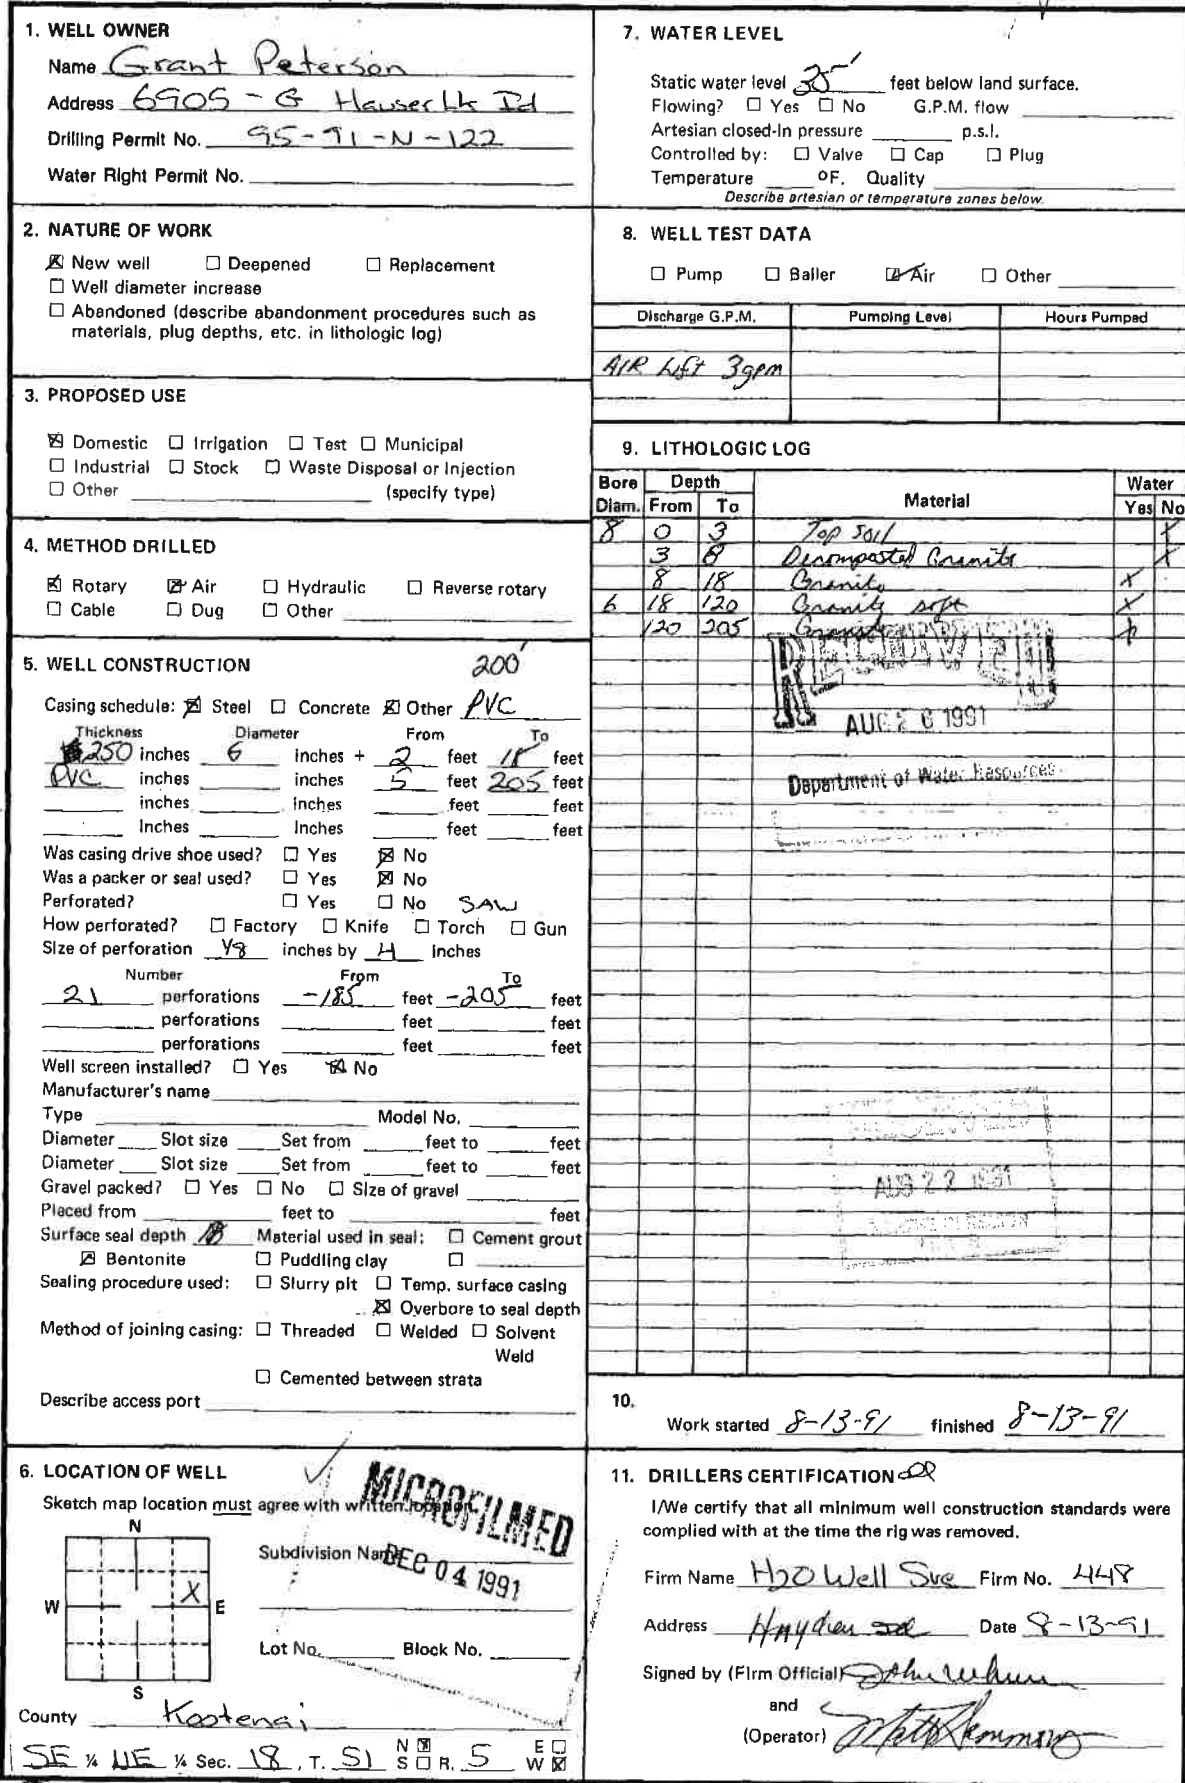 1. WELL OWNER
Name Grant Peterson
Address 6905 - G Hauser Lk Id
Drilling Permit No. 95-91-N-122
Water Right Permit No.
2. NATURE OF WORK
☒ New well ☐ Deepened ☐ Replacement
☐ Well diameter increase
☐ Abandoned (describe abandonment procedures such as
materials, plug depths, etc. in lithologic log)
3. PROPOSED USE
☒ Domestic ☐ Irrigation ☐ Test ☐ Municipal
☐ Industrial ☐ Stock ☐ Waste Disposal or Injection
☐ Other (specify type)
4. METHOD DRILLED
☒ Rotary ☒ Air ☐ Hydraulic ☐ Reverse rotary
☐ Cable ☐ Dug ☐ Other
5. WELL CONSTRUCTION 200'
Casing schedule: ☒ Steel ☐ Concrete ☒ Other PVC
Thickness Diameter From To
.250 inches 6 inches + 2 feet 18 feet
PVC inches inches 5 feet 205 feet
inches inches feet feet
inches inches feet feet
Was casing drive shoe used? ☐ Yes ☒ No
Was a packer or seal used? ☐ Yes ☒ No
Perforated? ☐ Yes ☐ No SAW
How perforated? ☐ Factory ☐ Knife ☐ Torch ☐ Gun
Size of perforation 1/8 inches by 4 inches
Number From To
21 perforations -185 feet -205 feet
perforations feet feet
perforations feet feet
Well screen installed? ☐ Yes ☒ No
Manufacturer's name
Type Model No.
Diameter Slot size Set from feet to feet
Diameter Slot size Set from feet to feet
Gravel packed? ☐ Yes ☐ No ☐ Size of gravel
Placed from feet to feet
Surface seal depth 18 Material used in seal: ☐ Cement grout
☒ Bentonite ☐ Puddling clay ☐
Sealing procedure used: ☐ Slurry pit ☐ Temp. surface casing
☒ Overbore to seal depth
Method of joining casing: ☐ Threaded ☐ Welded ☐ Solvent
Weld
☐ Cemented between strata
Describe access port
6. LOCATION OF WELL
Sketch map location must agree with written location.
MICROFILMED
DEC 04 1991
N
W X E
S
Subdivision Name
Lot No. Block No.
County Kootenai
SE ¼ NE ¼ Sec. 18, T. 51 N ☒ S ☐ R. 5 E ☐ W ☒
7. WATER LEVEL
Static water level 35' feet below land surface.
Flowing? ☐ Yes ☐ No G.P.M. flow
Artesian closed-in pressure p.s.i.
Controlled by: ☐ Valve ☐ Cap ☐ Plug
Temperature °F. Quality
Describe artesian or temperature zones below.
8. WELL TEST DATA
☐ Pump ☐ Bailer ☒ Air ☐ Other
Discharge G.P.M. Pumping Level Hours Pumped
AIR Lift 3gpm
9. LITHOLOGIC LOG
Bore Diam. Depth From To Material Water Yes No
8 0 3 Top Soil X
3 8 Decomposted Granite X
8 18 Granite X
6 18 120 Granite soft X
120 205 Granite X
RECEIVED
AUG 26 1991
Department of Water Resources
AUG 22 1991
10.
Work started 8-13-91 finished 8-13-91
11. DRILLERS CERTIFICATION
I/We certify that all minimum well construction standards were
complied with at the time the rig was removed.
Firm Name H2O Well Sve Firm No. 448
Address Hayden Id Date 8-13-91
Signed by (Firm Official)
and
(Operator)